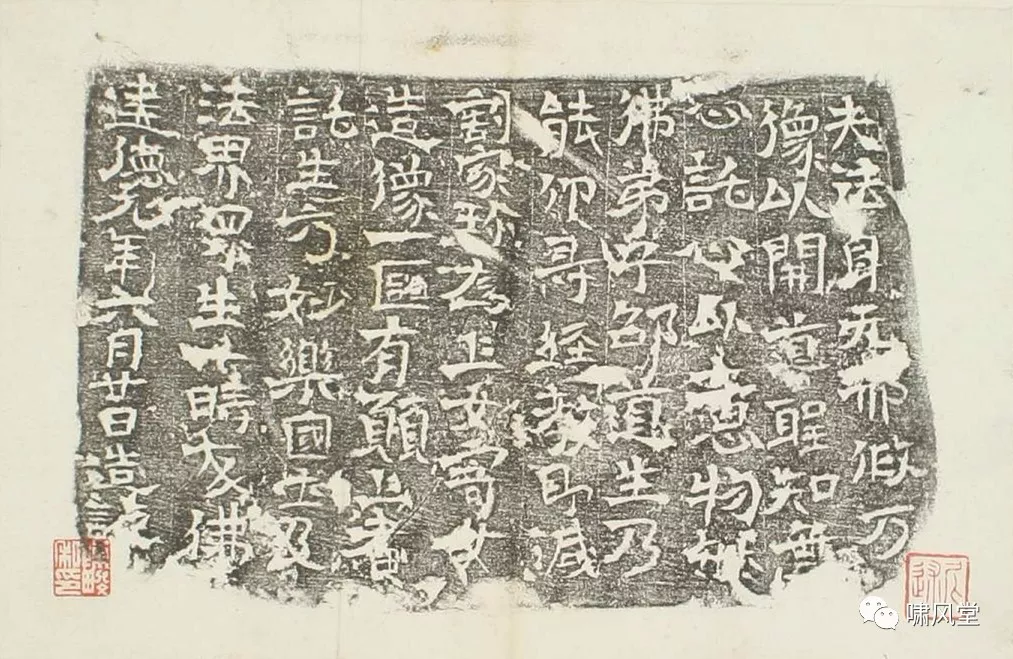 夫法身无形假
像以開 聖知無
心託 意物
佛弟子邵道生乃
能仰尋經教即減
割家珍為亡女 女
造像一區有願亡者
託生 妙樂國土及
法界眾生 時成佛
建德元年六月廿日造訖
啸风堂